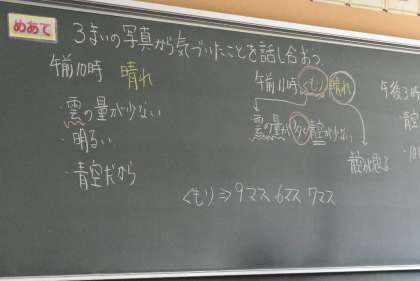 めあて
3まいの写真から気づいたことを話し合おう
午前10時 晴れ
・雲の量が少ない
・明るい
・青空だから
午前11時 くもり 晴れ
雲の量が多く青空が少ない
青空が見える
くもり⇒9マス、6マス 7マス
午後3時
青空